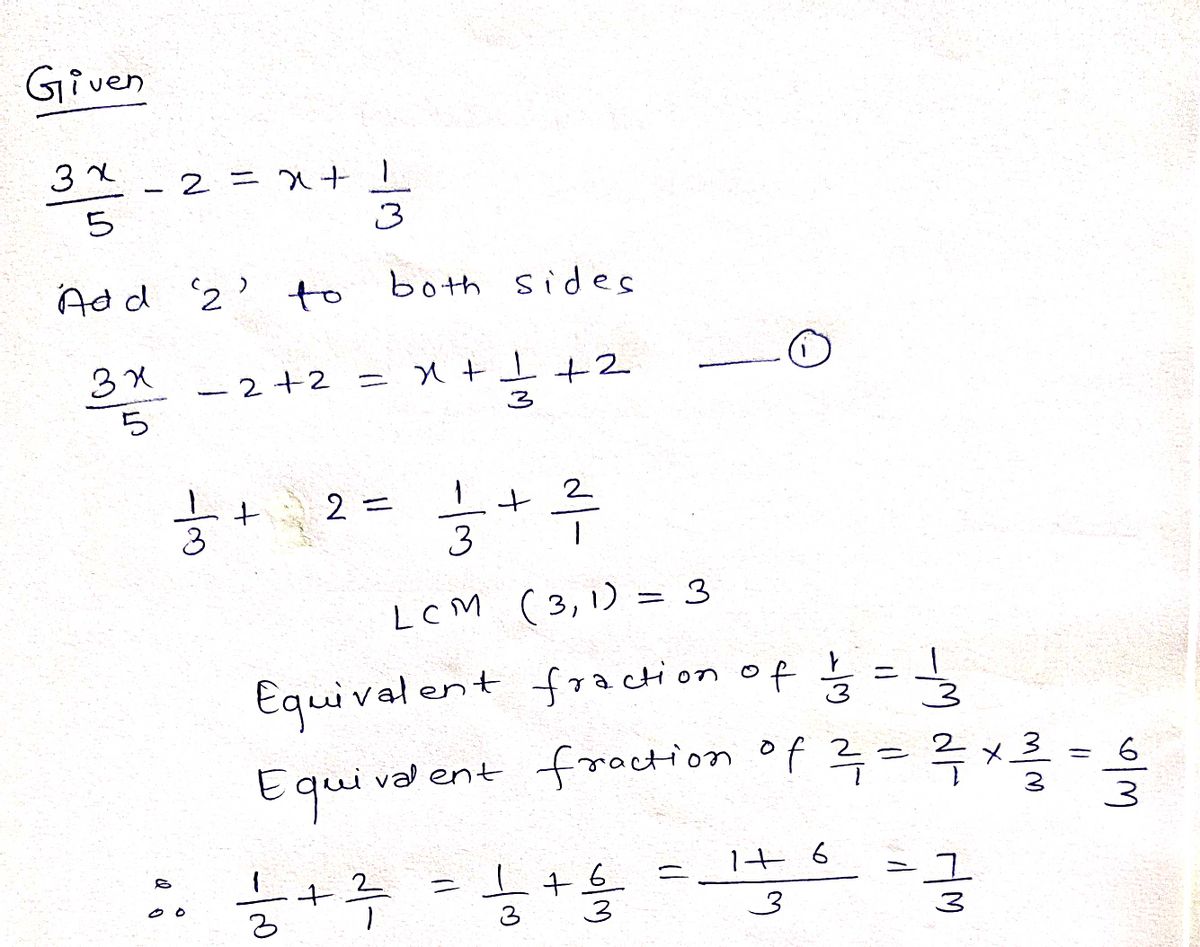 Given
3x/5 - 2 = x + 1/3
Add '2' to both sides
3x/5 - 2 + 2 = x + 1/3 + 2 — ①
1/3 + 2 = 1/3 + 2/1
LCM (3,1) = 3
Equivalent fraction of 1/3 = 1/3
Equivalent fraction of 2/1 = 2/1 × 3/3 = 6/3
∴ 1/3 + 2/1 = 1/3 + 6/3 = (1+6)/3 = 7/3